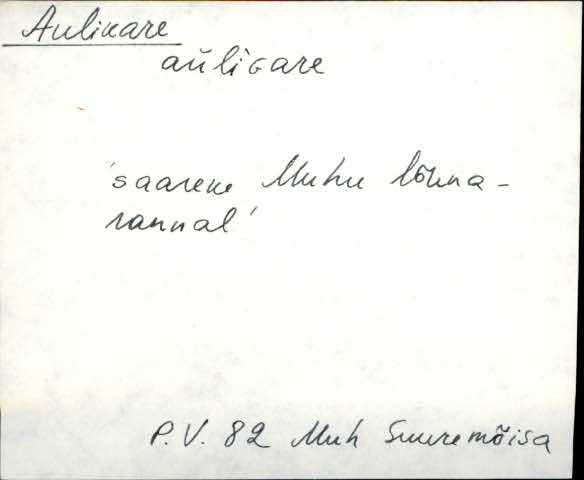 Aulikare
aŭliɢare
'saareke Muhu lõuna-
rannal'
P.V. 82 Muh Suuremõisa